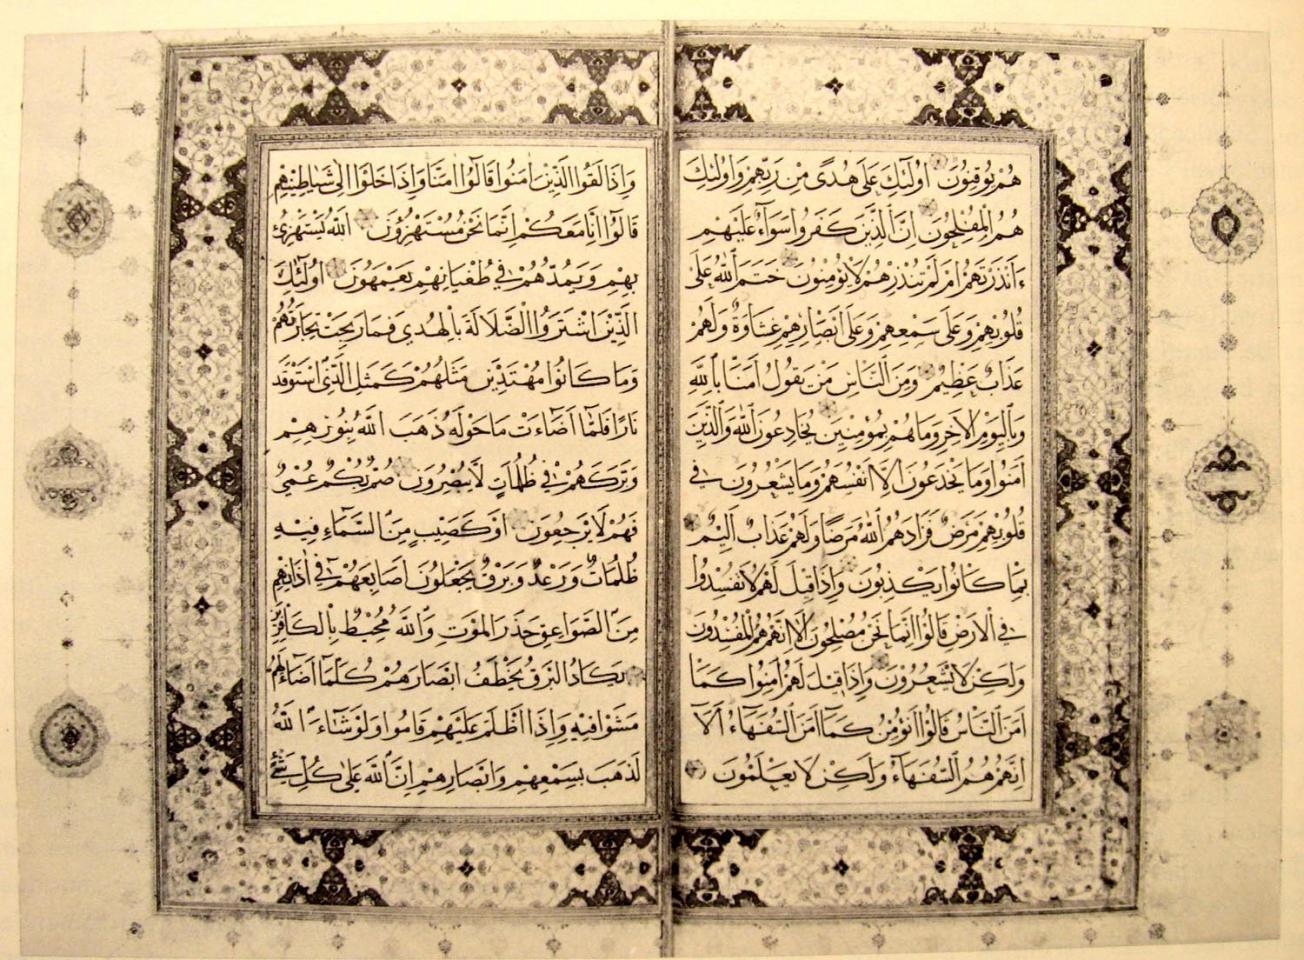 هُمْ يُوقِنُونَ أُولَٰئِكَ عَلَىٰ هُدًى مِنْ رَبِّهِمْ وَأُولَٰئِكَ
هُمُ الْمُفْلِحُونَ إِنَّ الَّذِينَ كَفَرُوا سَوَاءٌ عَلَيْهِمْ
ءَأَنْذَرْتَهُمْ أَمْ لَمْ تُنْذِرْهُمْ لَا يُؤْمِنُونَ خَتَمَ اللَّهُ عَلَىٰ
قُلُوبِهِمْ وَعَلَىٰ سَمْعِهِمْ وَعَلَىٰ أَبْصَارِهِمْ غِشَاوَةٌ وَلَهُمْ
عَذَابٌ عَظِيمٌ وَمِنَ النَّاسِ مَنْ يَقُولُ آمَنَّا بِاللَّهِ
وَبِالْيَوْمِ الْآخِرِ وَمَا هُمْ بِمُؤْمِنِينَ يُخَادِعُونَ اللَّهَ وَالَّذِينَ
آمَنُوا وَمَا يَخْدَعُونَ إِلَّا أَنْفُسَهُمْ وَمَا يَشْعُرُونَ فِي
قُلُوبِهِمْ مَرَضٌ فَزَادَهُمُ اللَّهُ مَرَضًا وَلَهُمْ عَذَابٌ أَلِيمٌ
بِمَا كَانُوا يَكْذِبُونَ وَإِذَا قِيلَ لَهُمْ لَا تُفْسِدُوا
فِي الْأَرْضِ قَالُوا إِنَّمَا نَحْنُ مُصْلِحُونَ أَلَا إِنَّهُمْ هُمُ الْمُفْسِدُونَ
وَلَٰكِنْ لَا يَشْعُرُونَ وَإِذَا قِيلَ لَهُمْ آمِنُوا كَمَا
آمَنَ النَّاسُ قَالُوا أَنُؤْمِنُ كَمَا آمَنَ السُّفَهَاءُ أَلَا
إِنَّهُمْ هُمُ السُّفَهَاءُ وَلَٰكِنْ لَا يَعْلَمُونَ
وَإِذَا لَقُوا الَّذِينَ آمَنُوا قَالُوا آمَنَّا وَإِذَا خَلَوْا إِلَىٰ شَيَاطِينِهِمْ
قَالُوا إِنَّا مَعَكُمْ إِنَّمَا نَحْنُ مُسْتَهْزِئُونَ اللَّهُ يَسْتَهْزِئُ
بِهِمْ وَيَمُدُّهُمْ فِي طُغْيَانِهِمْ يَعْمَهُونَ أُولَٰئِكَ
الَّذِينَ اشْتَرَوُا الضَّلَالَةَ بِالْهُدَىٰ فَمَا رَبِحَتْ تِجَارَتُهُمْ
وَمَا كَانُوا مُهْتَدِينَ مَثَلُهُمْ كَمَثَلِ الَّذِي اسْتَوْقَدَ
نَارًا فَلَمَّا أَضَاءَتْ مَا حَوْلَهُ ذَهَبَ اللَّهُ بِنُورِهِمْ
وَتَرَكَهُمْ فِي ظُلُمَاتٍ لَا يُبْصِرُونَ صُمٌّ بُكْمٌ عُمْيٌ
فَهُمْ لَا يَرْجِعُونَ أَوْ كَصَيِّبٍ مِنَ السَّمَاءِ فِيهِ
ظُلُمَاتٌ وَرَعْدٌ وَبَرْقٌ يَجْعَلُونَ أَصَابِعَهُمْ فِي آذَانِهِمْ
مِنَ الصَّوَاعِقِ حَذَرَ الْمَوْتِ وَاللَّهُ مُحِيطٌ بِالْكَافِرِينَ
يَكَادُ الْبَرْقُ يَخْطَفُ أَبْصَارَهُمْ كُلَّمَا أَضَاءَ لَهُمْ
مَشَوْا فِيهِ وَإِذَا أَظْلَمَ عَلَيْهِمْ قَامُوا وَلَوْ شَاءَ اللَّهُ
لَذَهَبَ بِسَمْعِهِمْ وَأَبْصَارِهِمْ إِنَّ اللَّهَ عَلَىٰ كُلِّ شَيْءٍ